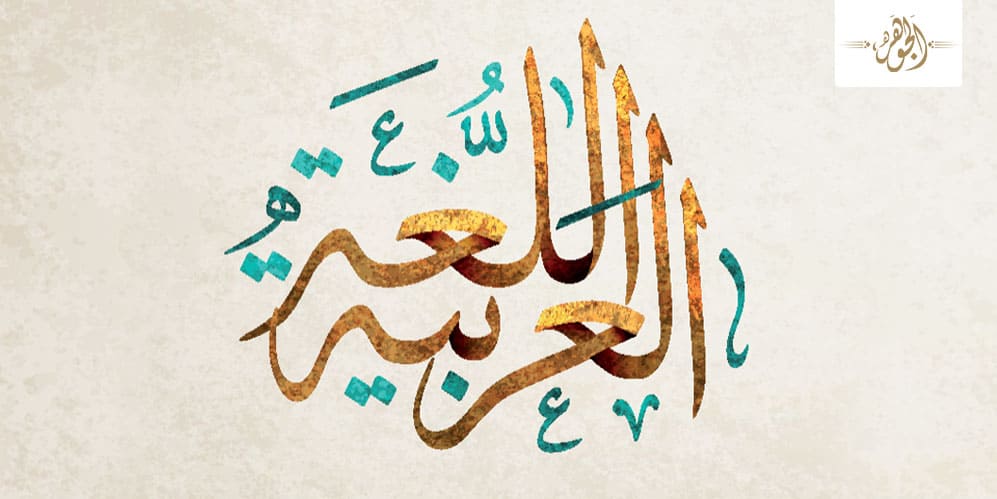 الجوهر
اللغة
العربية